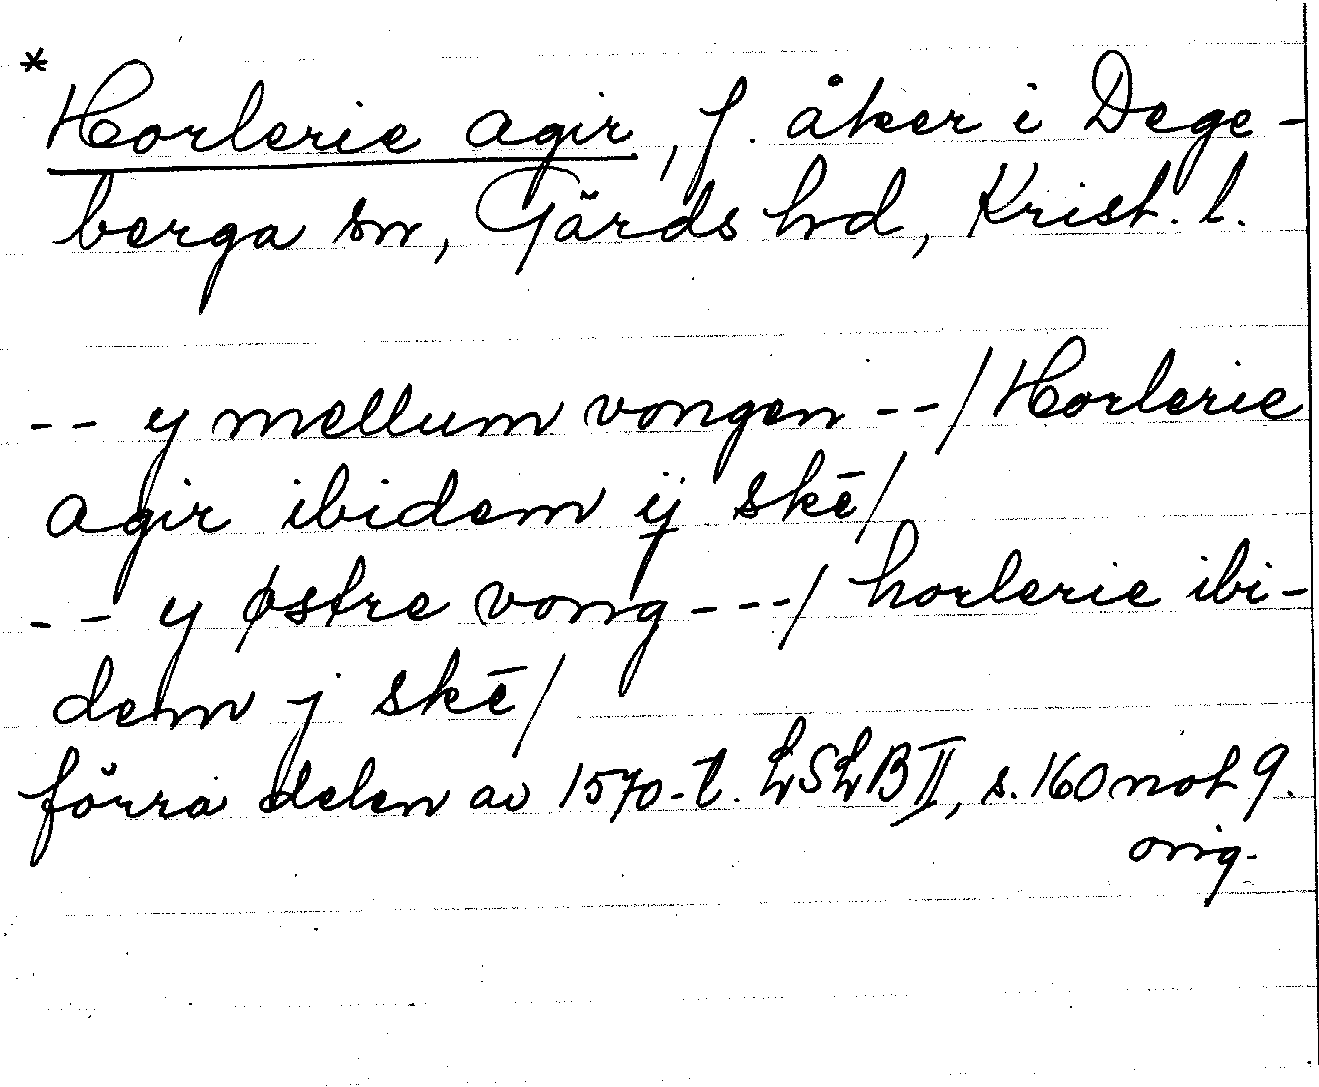 *
Horlerie agir, f. åker i Dege-
berga sn, Gärds hd, Krist. l.
-- y mellum vongen --/ Horlerie
agir ibidem ij skē/
-- y østre vong ---/ horlerie ibi-
dem j skē/
förra delen av 1570-t. LSLB II, s. 160 not 9.
orig.